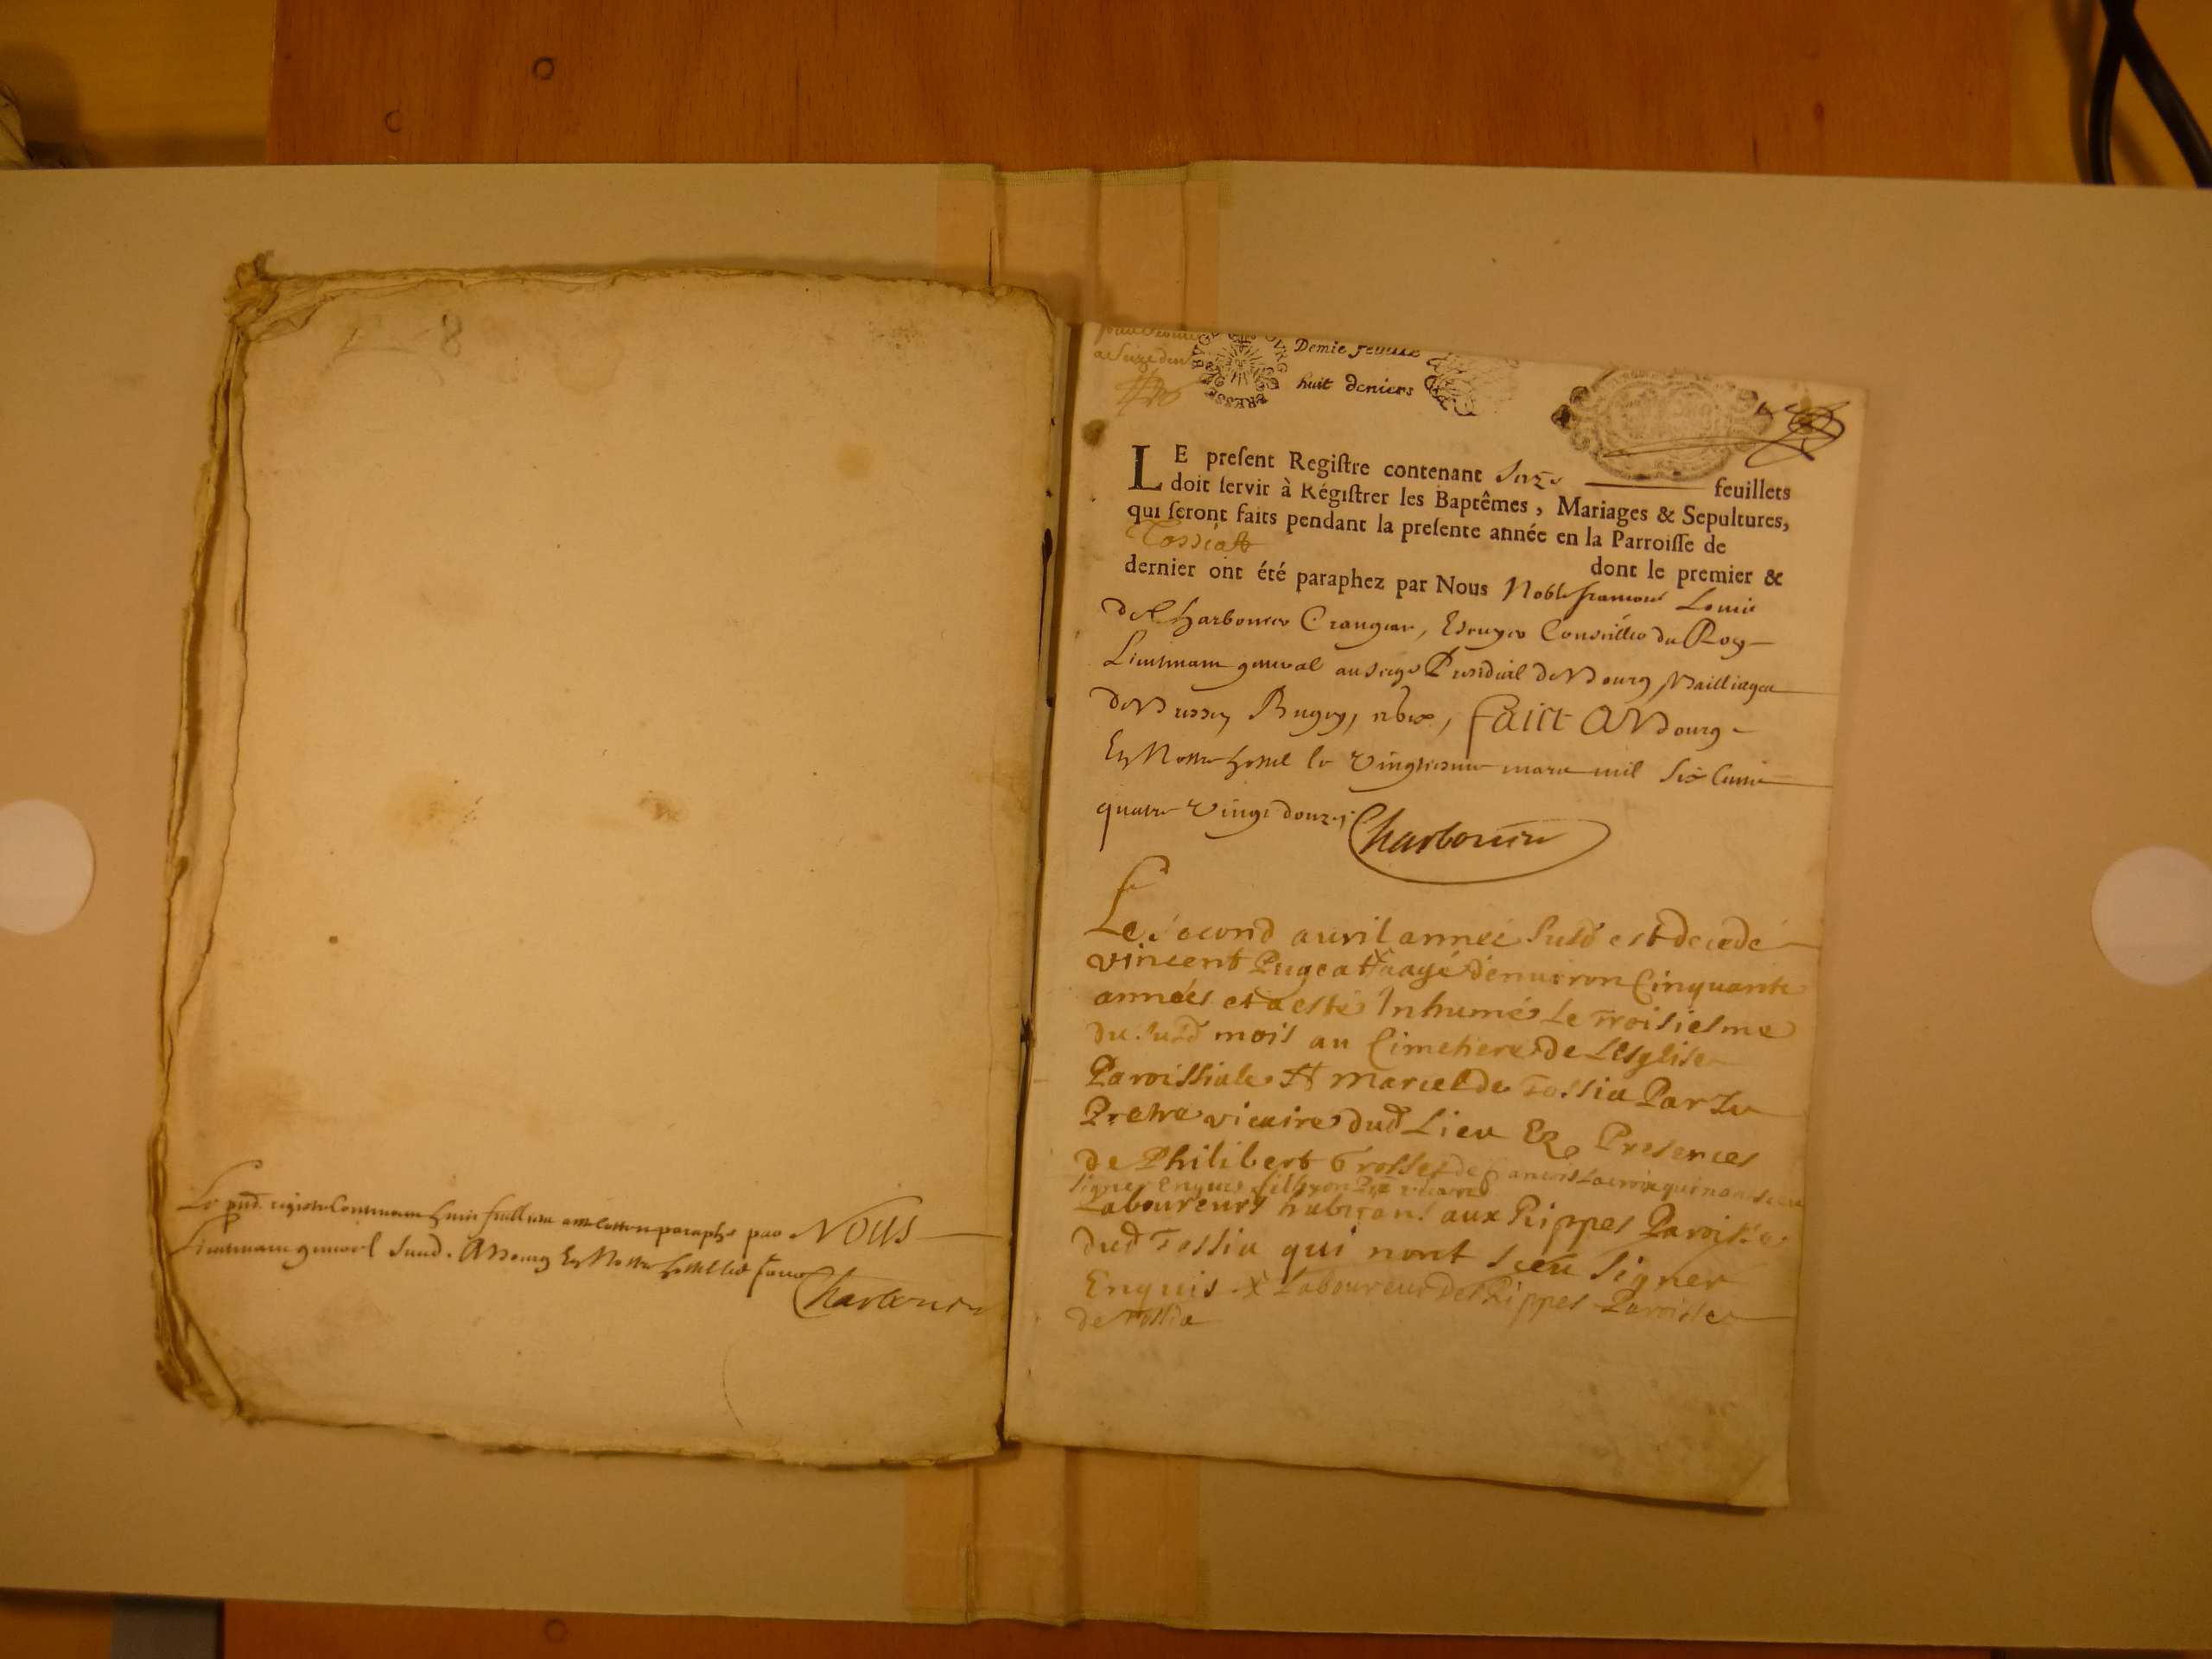 Le pnt. registre Contenant huit feuillets a esté cotté et paraphé par Nous
Lieutenant general susd. A Bourg En Nostre hostel led. jour
Charbonnier
BOURG EN BRESSE
Demie feuille
huit deniers
LE preſent Regiſtre contenant feuillets
doit ſervir à Régiſtrer les Baptêmes, Mariages & Sepultures,
qui ſeront faits pendant la preſente année en la Parroiſſe de
Tossiat dont le premier &
dernier ont été paraphez par Nous Noble francois Louis
de Charbonnier Crangeac, Escuyer Conseiller du Roy
Lieutenant general au siege Presidial de Bourg, Bailliages
de Bresse, Bugey, faict A Bourg
En Nostre hostel le Vingtiesme mars mil six Cents
quatre Vingt douze,
Charbonnier
Le second auril année susd est decedé
vincent Pugeat x aagé d'enuiron Cinquante
années et a esté Inhumé Le Troisiesme
du susd mois au Cimetiere de L'Esglise
Paroissiale St Marcel de Tossia Par Le
Pretre vicaire dud Lieu Et Presences
de Philibert Grosset de francois Lacroix qui n'a sceu
signer Enquis
Laboureurs habitans aux Rippes Paroisse
dud Tossia qui n'ont sceu signer
Enquis x Laboureur des Rippes Paroisse
de Tossia